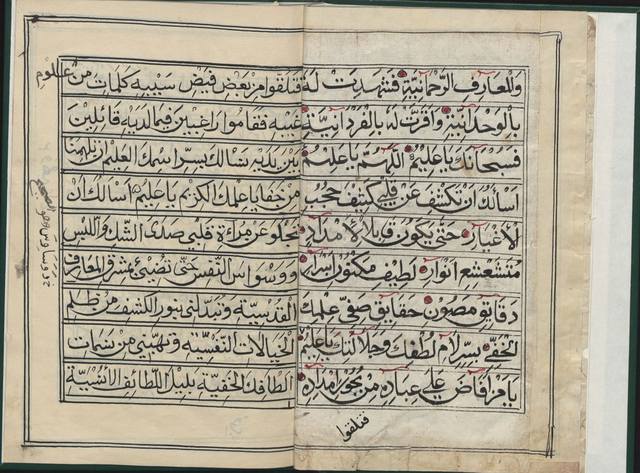 والمعارف الرحمانية فشهدت له
بالوحدانية واقرت له بالفردانية
فسبحانك يا عليم اللهم يا عليم
اسألك ان تكشف عن قلبي كشف حجب
الاغيار حتى يكون قابلا لامداد
متشعشع انواره لطيف مكنون اسرار
دقايق مصون حقايق صفي علمك
الخفي بسر لام لطفك وجلالتك يا عليم
يا من افاض على عباده من بحر امداده
فتلقوا
فتلقوا من بعض فيض سيبه كلمات من علوم
غيبه فقاموا راغبين فيما لديه قائلين
بين يديه نسالك بسر اسمك العليم ان تلهمنا
من خفايا علمك الكريم يا عليم اسالك ان
تجلو عن مرآة قلبي صدى الشك واللبس
ووسواس النفس حتى تضيئ بمشرق المعارف
القدسية وتبدلني بنور الكشف من ظلم
الخيالات النفسية وتهبني من نسمات
الطافك الخفية اللطائف الانسية